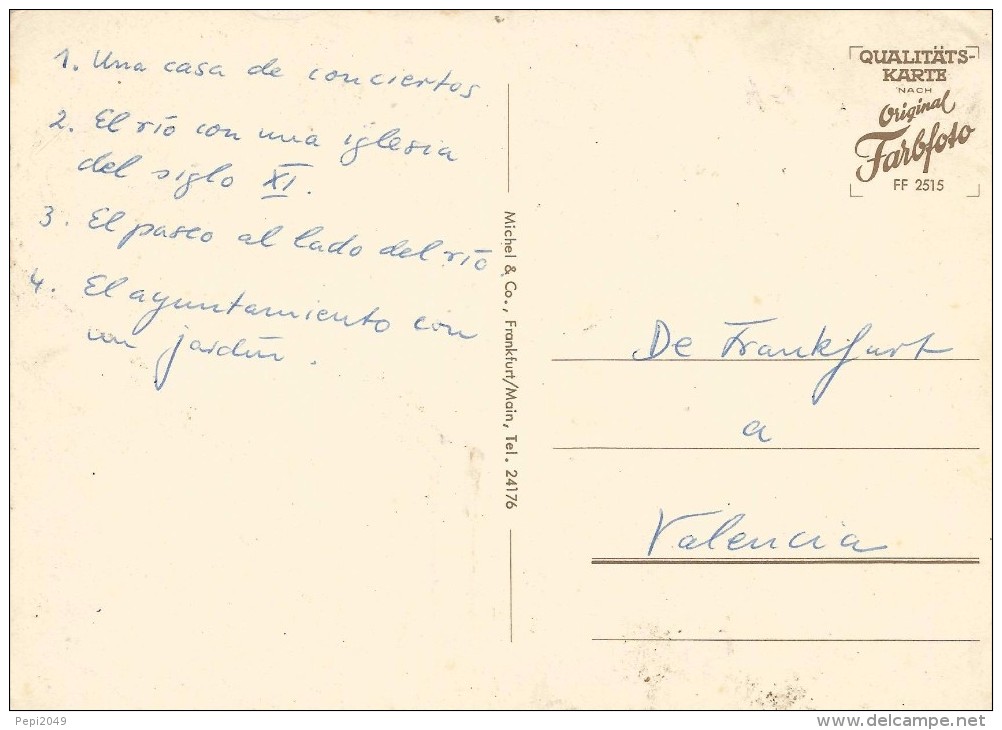 1. Una casa de conciertos
2. El río con una iglesia
del siglo XI.
3. El paseo al lado del río
4. El ayuntamiento con
un jardín.
Michel & Co., Frankfurt/Main, Tel. 24176
QUALITÄTS-
KARTE
NACH
Original
Farbfoto
FF 2515
De Frankfurt
a
Valencia
Pepi2049
delcampe.net